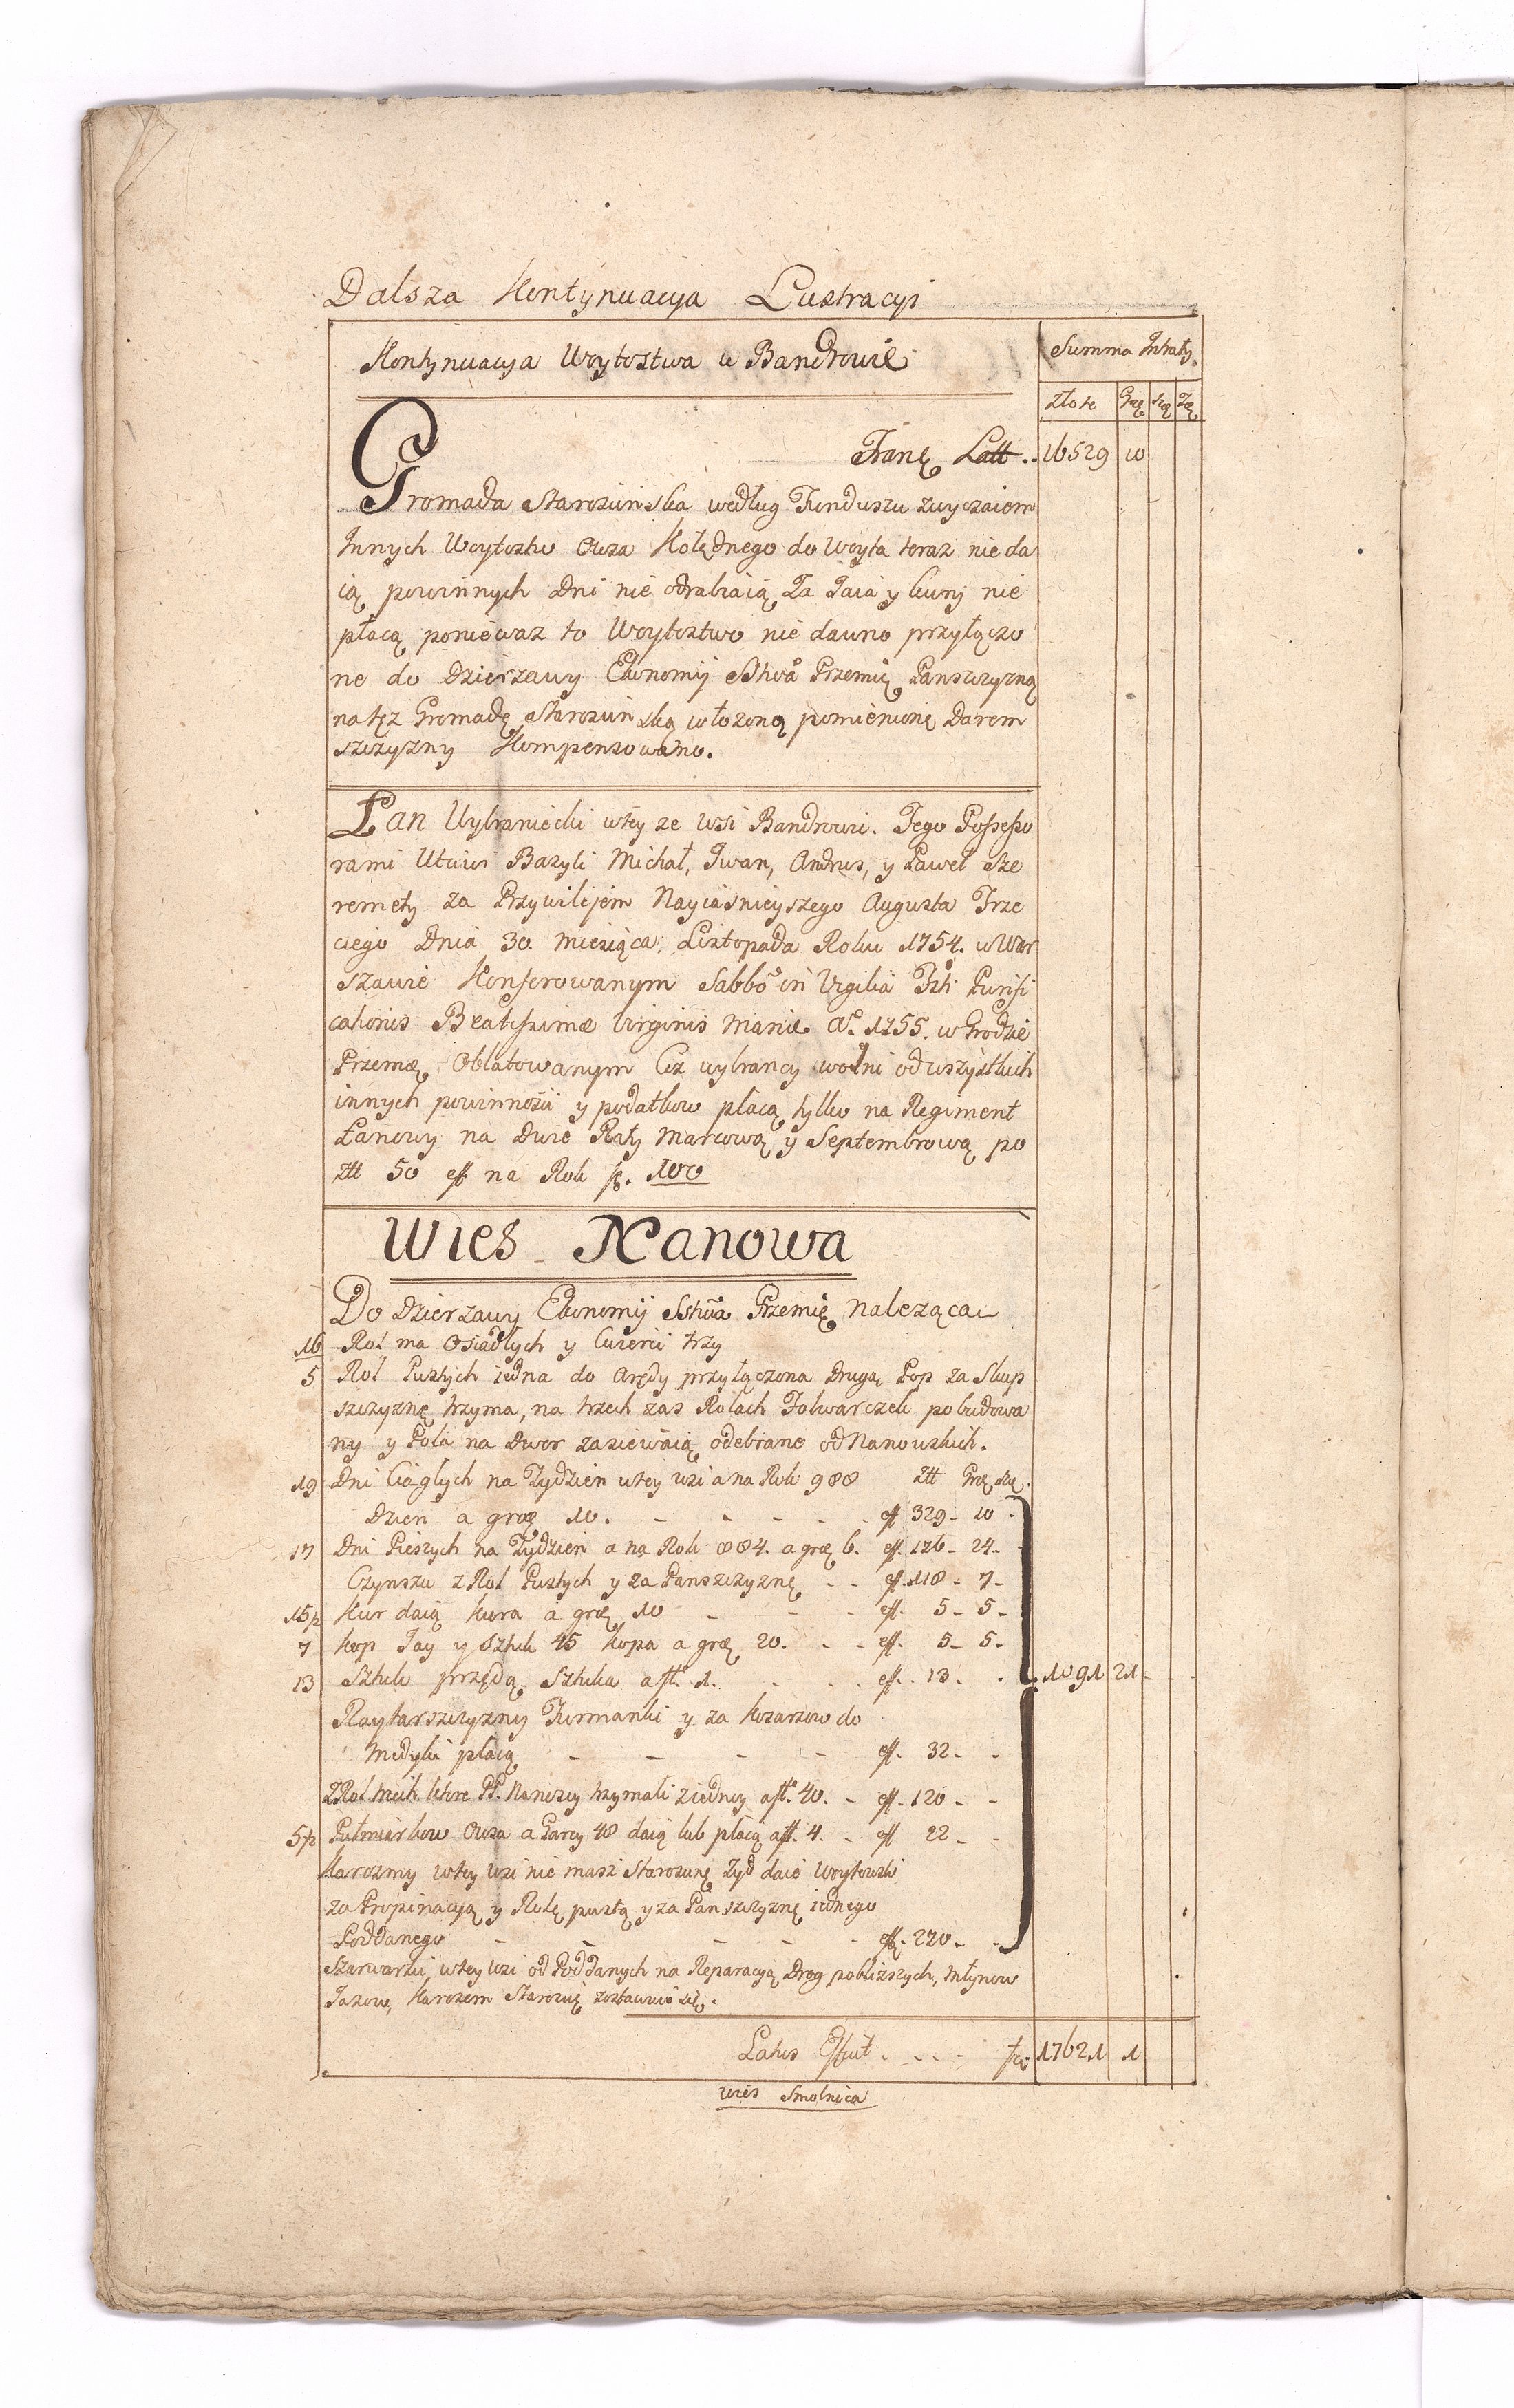 Dalsza Kontynuacya Lustracyi
Kontynuacya Woytostwa w Bandrowie
Summa Intraty
złote Grę szę
Tranę Latt .. 16529 10
Gromada Staroscińska według Funduszu zwyczaiem
Innych Woytostw Owsa Kolędnego do Woyta teraz nie da
ią powinnych Dni nie odrabiaią Za Jaia y kury nie
płacą ponieważ to Woytostwo nie dawno przyłączo
ne do Dzierzawy Ekonomij Sstwa Przemię Panszczyzną
na tęz Gromadę Starościnską włozoną pomienionę Darem
szczyzny Kompensowano.
Łan Wybraniecki wtey ze wsi Bandrowie. Tego Possesso
rami Utciwi Bazyli Michał, Iwan, Andrus, y Paweł Sze
remety za Przywilejem Nayiasnieyszego Augusta Trze
ciego Dnia 30. Miesiąca Listopada Roku 1754. w War
szawie Konferowanym Sabbo in Vigilia Fsti Purifi
cationis Beatissimæ Virginis Mariæ Ao. 1755. w Grodzie
Przemę Oblatowanym Ciz wybrancy wolni od wszystkich
innych powinności y podatkow płacą tylko na Regiment
Łanowy na Dwie Raty Marcową y Septembrową po
złł 50 eff na Rok f. 100
Wies Nanowa
Do Dzierzawy Ekonomij Sstwa Przemię Naleząca
16 Rol ma Osiadłych y Cwierci trzy
5 Rol Pustych iedna do Arędy przyłączona Drugą Pop za Skup
szczyznę trzyma, na trzech zas Rolach Folwarczek pobudowa
ny y Pola na Dwor zasiewaią odebrane od Nanowskich.
19 Dni Ciągłych na Tydzien wtey wsi a na Rok 988 Złł Grę szę.
Dzien a groę 10. - - - - eff 329 - 10 -
17 Dni Pieszych na Tydzien a na Rok 884. a groę 6. eff. 176 - 24 -
Czynszu z Rol Pustych y za Panszczyznę - - eff. 118 - 7 -
15p Kur daią kura a groę 10 - - - eff. 5 - 5 -
7 Kop Jay y Sztuk 45 kopa a groę 20. - - eff. 5 - 5 -
13 Sztuk przędą Sztuka a ft. 1. - - eff. 13 - - 1091 21 - -
Raytarszczyzny Furmanki y za kozarzow do
Medyki płacą - - - - eff. 32 - -
Z Rol trzech ktore PP. Nanoscy trzymali z iedney a ft. 40. - eff. 120 - -
5p Pułmiarkow Owsa a Garcy 48 daią lub płacą a ft. 4. - eff 22 - -
Karczmy wtey wsi nie masz Starościnę Zyd daie Woytowski
za Propinacyą y Rolę pustą y za Panszczyznę iednego
Poddanego - - - - - eff. 220 - -
Szarwarki wtey wsi od Poddanych na Reparacyą Drog poblizszych, młynow
Jazow, Karczem Starościę zostawuie się.
Latus Effuit . - - - 17621 1
Wies Smolnica